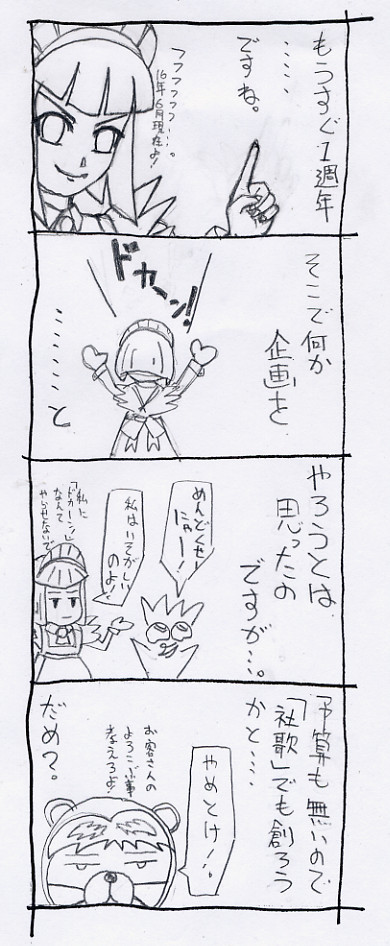 もうすぐ1週年
……
ですね。
フフフフフフ…。
16年6月現在よ!
そこで何か
企画を
ドカーン!
……と
やろうとは
思ったの
ですが…。
めんどくせー
にゃー!
私はいそがしい
のよ!
「私に
「ドカーン」
なんて
やらせないで
予算も無いので
「社歌」でも創ろう
かと…。
やめとけ!。
お客さんの
よろこぶ事
考えろよ!
だめ?。